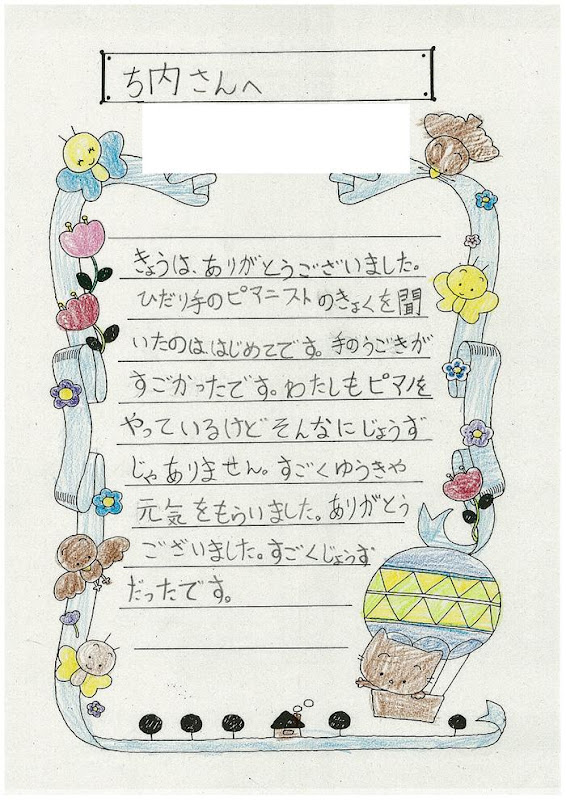 ち内さんへ
きょうは、ありがとうございました。
ひだり手のピアニストのきょくを聞
いたのは、はじめてです。手のうごきが
すごかったです。わたしもピアノを
やっているけどそんなにじょうず
じゃありません。すごくゆうきや
元気をもらいました。ありがとう
ございました。すごくじょうず
だったです。